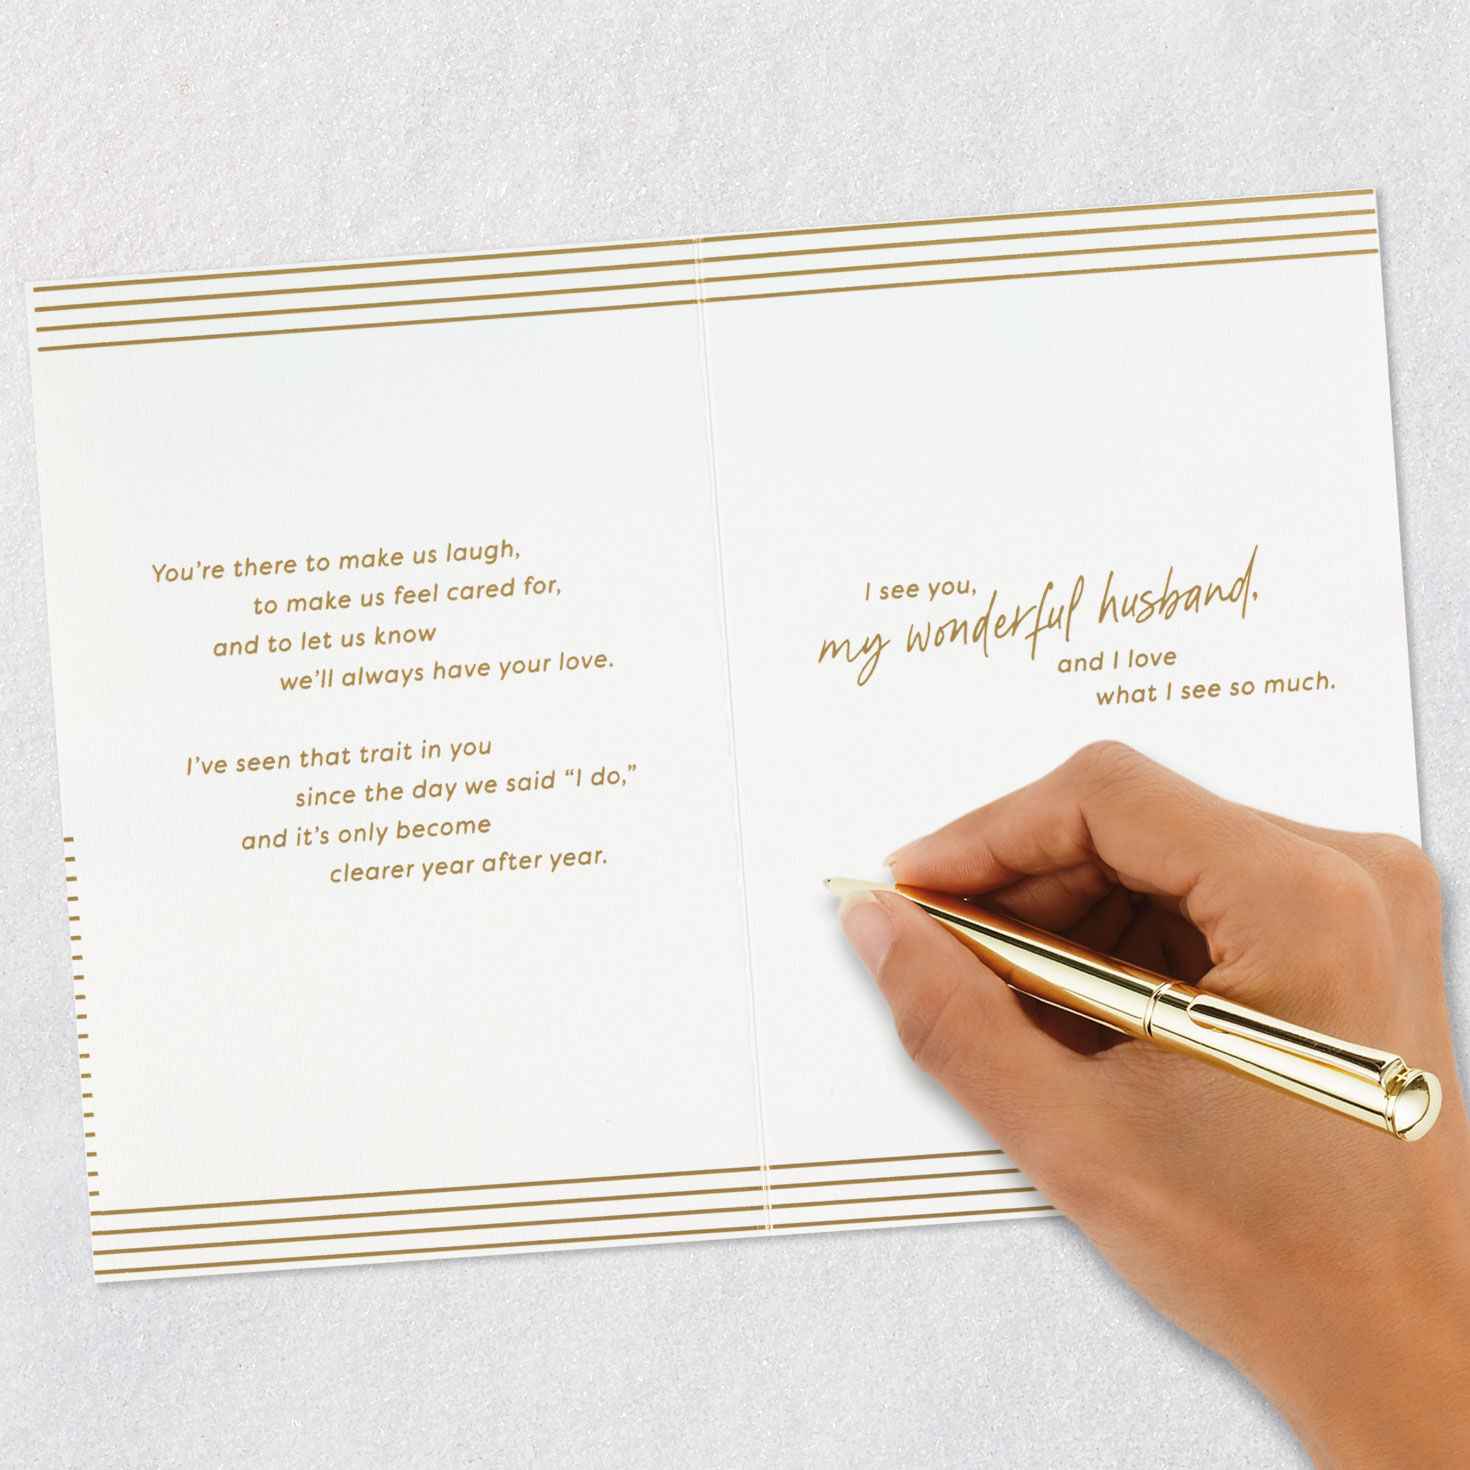 You're there to make us laugh,
to make us feel cared for,
and to let us know
we'll always have your love.
I've seen that trait in you
since the day we said “I do,”
and it's only become
clearer year after year.
I see you,
my wonderful husband,
and I love
what I see so much.